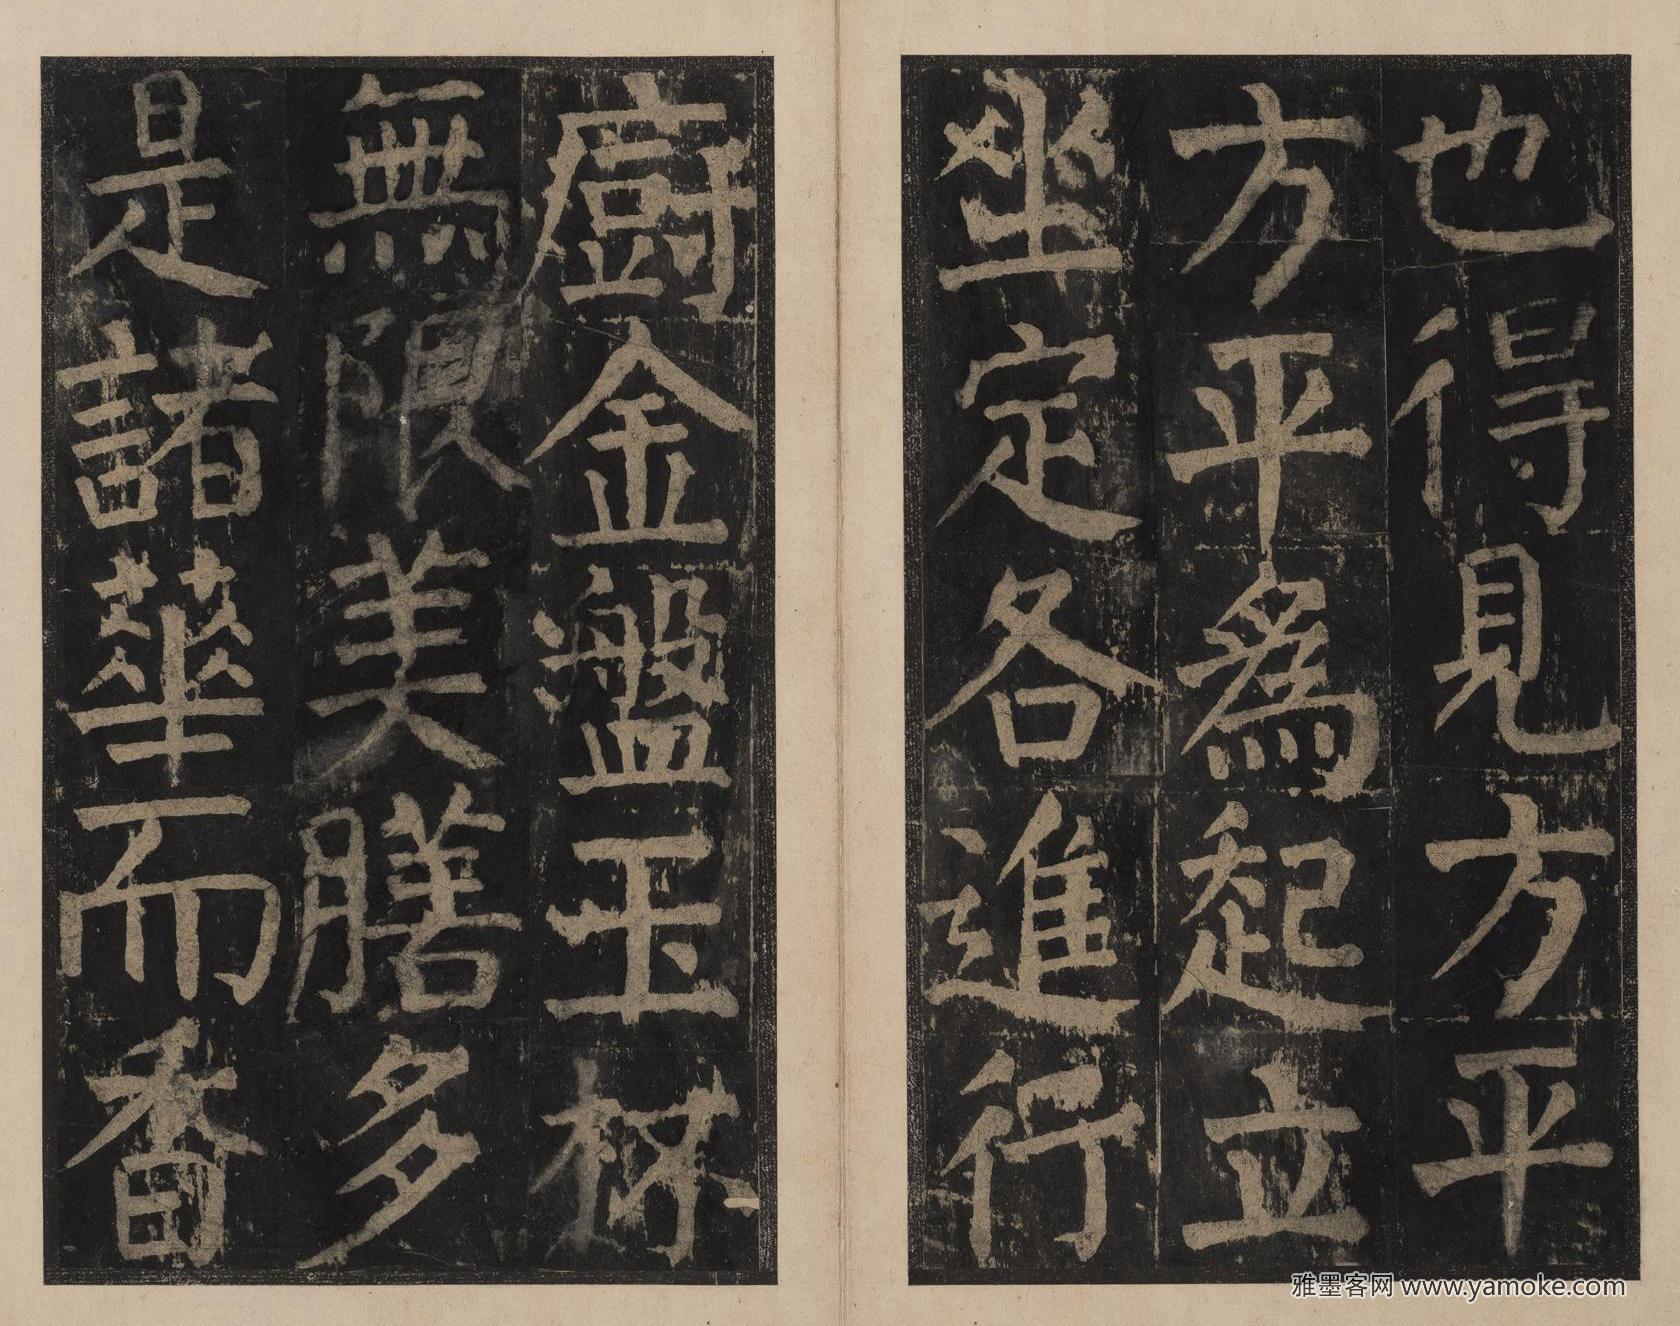 也得見方平
方平爲起立
坐定各進行
廚金盤玉杯
無限美膳多
是諸華而香
雅墨客网 www.yamoke.com